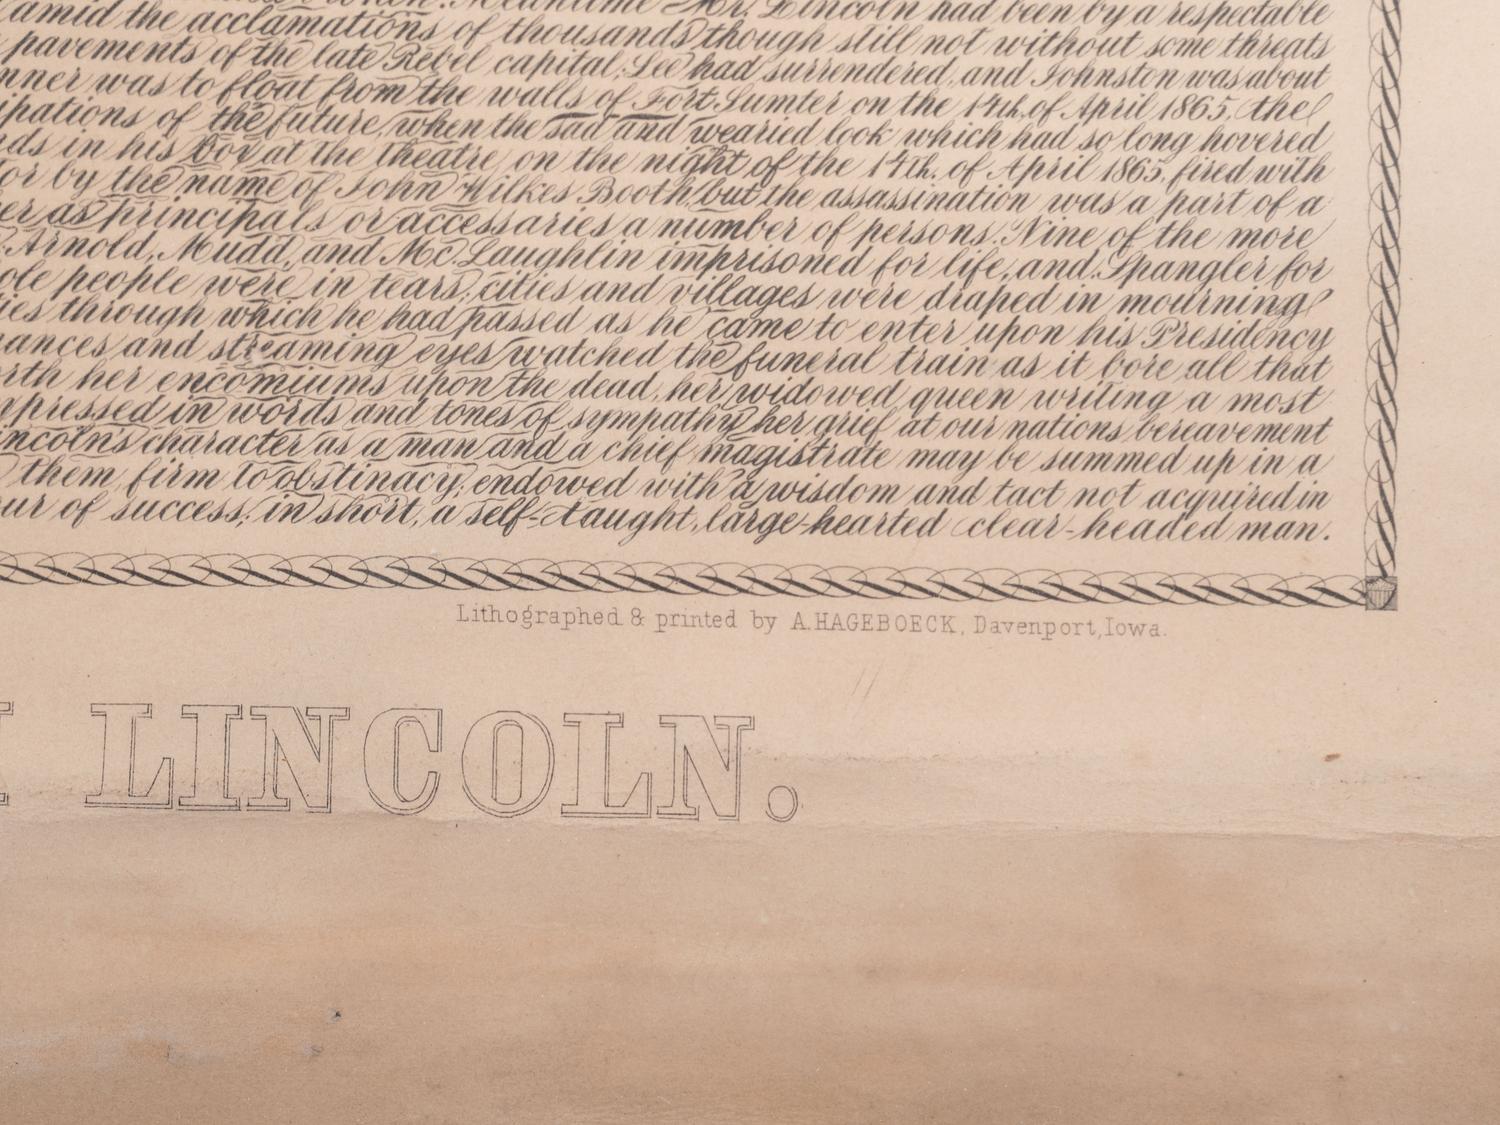 when. Meantime Mr. Lincoln had been by a respectable
amid the acclamations of thousands though still not without some threats
pavements of the late Rebel capital; Lee had surrendered, and Johnston was about
nner was to float from the walls of Fort Sumter on the 14th. of April 1865, the
ipations of the future, when the sad and wearied look which had so long hovered
ds in his box at the theatre, on the night of the 14th. of April 1865, fired with
or by the name of John Wilkes Booth, but the assassination was a part of a
er as principals or accessaries a number of persons. Nine of the more
Arnold, Mudd, and Mc. Laughlin imprisoned for life, and Spangler for
ole people were in tears; cities and villages were draped in mourning
ies through which he had passed as he came to enter upon his Presidency
ances and streaming eyes watched the funeral train as it bore all that
rth her encomiums upon the dead, her widowed queen writing a most
xpressed in words and tones of sympathy her grief at our nations bereavement
ncoln's character as a man and a chief magistrate may be summed up in a
them, firm to obstinacy; endowed with a wisdom and tact not acquired in
our of success; in short, a self-taught, large-hearted clear-headed man.
Lithographed & printed by A. HAGEBOECK, Davenport, Iowa.
LINCOLN.